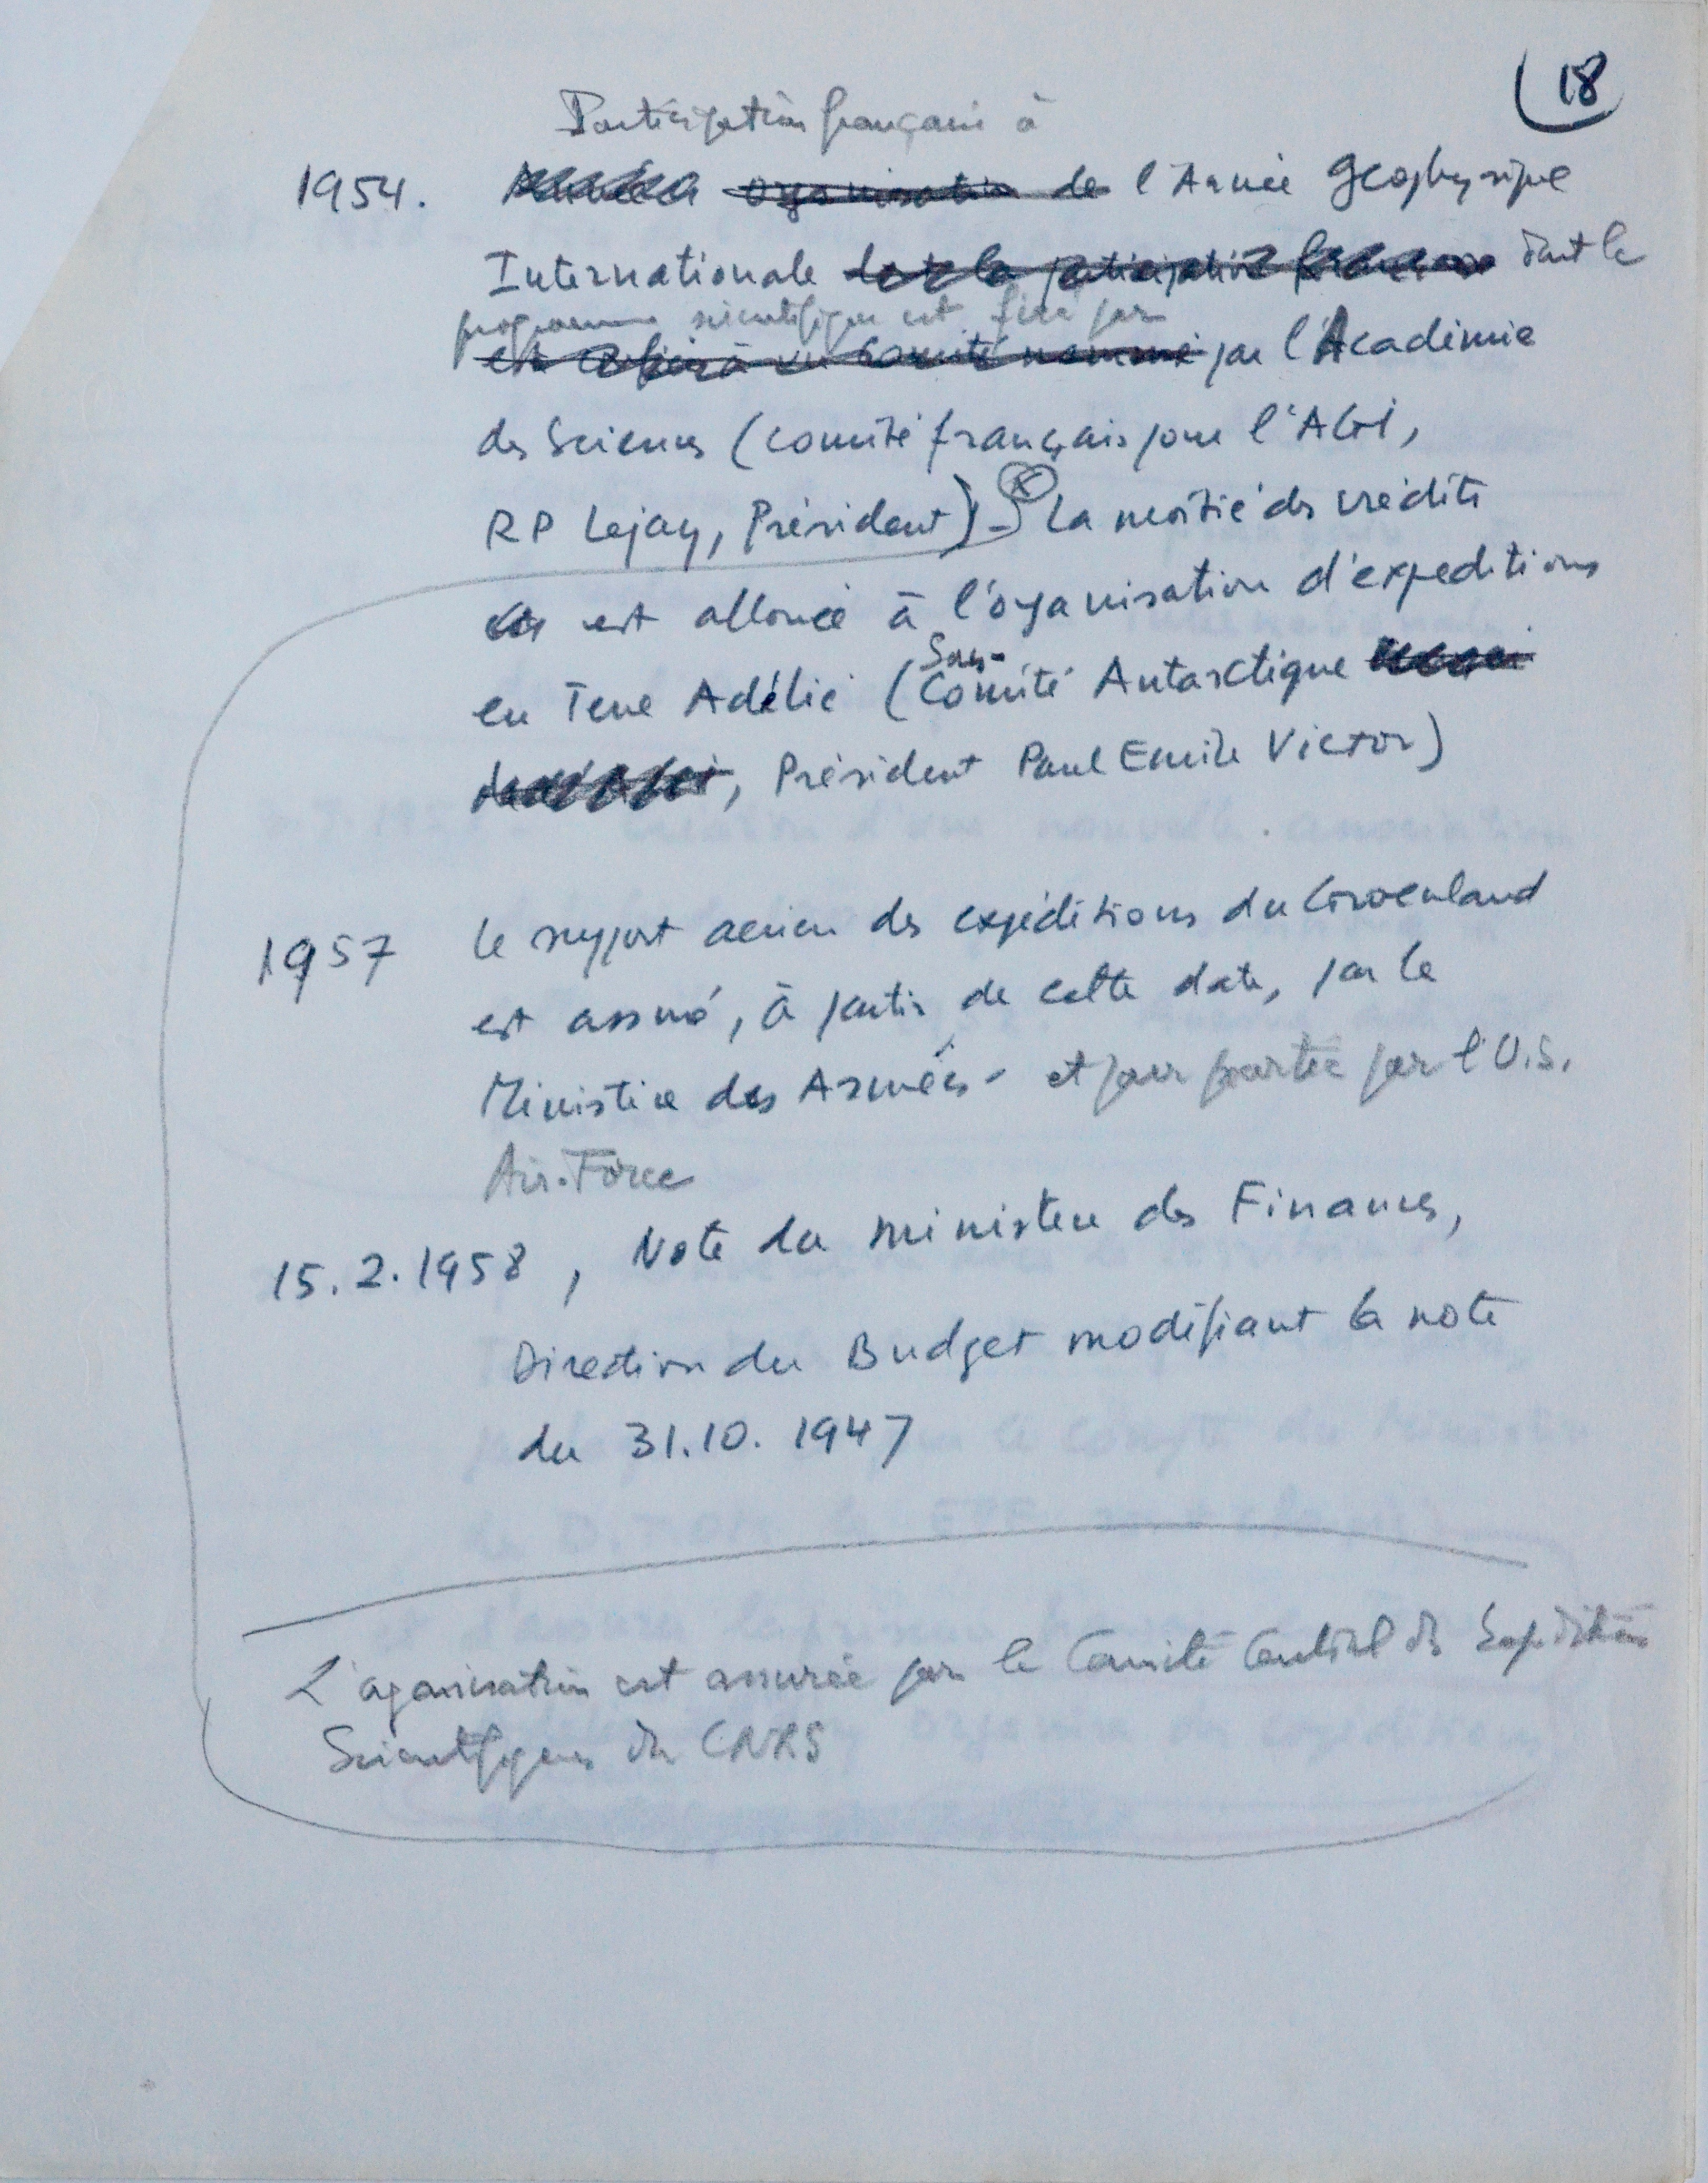 18
Participation française à
1954. organisation de l'Année Géophysique
Internationale dont la participation française dont le
programme scientifique est fixé par
est confiée à un Comité nommé par l'Académie
des Sciences (comité français pour l'AGI,
RP Lejay, Président). La moitié des crédits
est allouée à l'organisation d'expéditions
en Terre Adélie (Sous-Comité Antarctique
, Président Paul Emile Victor)
1957 Le support aérien des expéditions du Groenland
est assuré, à partir de cette date, par le
Ministère des Armées - et pour partie par l'U.S.
Air-Force
15.2.1958, Note du Ministère des Finances,
Direction du Budget modifiant la note
du 31.10.1947
L'organisation est assurée par le Comité Central des Expéditions
Scientifiques du CNRS